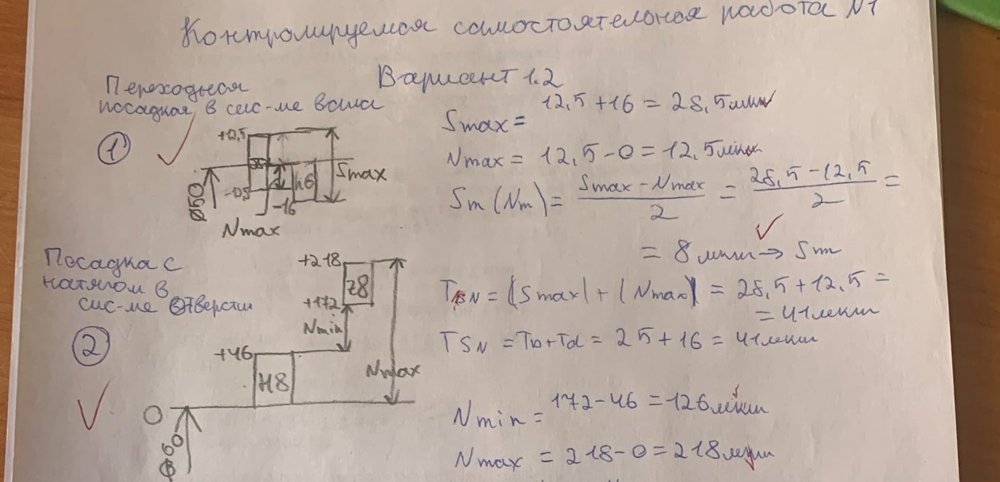 Контролируемая самостоятельная работа №1
Вариант 1.2
Переходная
посадка в сис-ме вала
1
+12,5
-16
h6
Smax
Nmax
Ø50
Smax = 12,5 + 16 = 28,5 мкм
Nmax = 12,5 - 0 = 12,5 мкм
Sm (Nm) = Smax - Nmax / 2 = 28,5 - 12,5 / 2 =
= 8 мкм → Sm
TSN = (Smax) + (Nmax) = 28,5 + 12,5 =
= 41 мкм
TSN = TD + Td = 25 + 16 = 41 мкм
Посадка с
натягом в
сис-ме отверстия
2
+218
z8
+172
Nmin
+46
H8
Nmax
0
Ø60
Nmin = 172 - 46 = 126 мкм
Nmax = 218 - 0 = 218 мкм